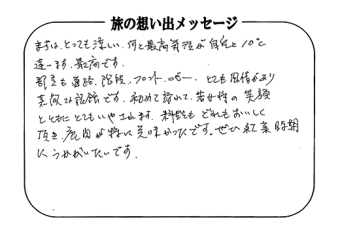 旅の想い出メッセージ
まずは、とっても涼しい。何と最高気温が自宅と10℃
違います。最高です。
部屋も通路、階段、フロント、ロビー、とても風情があり
素敵な旅館です。初めて訪れて、若女将の笑顔
とともにとてもいやされます。料理もどれもおいしく
頂き、鹿肉が特に美味かったです。ぜひ紅葉時期
にうかがいたいです。